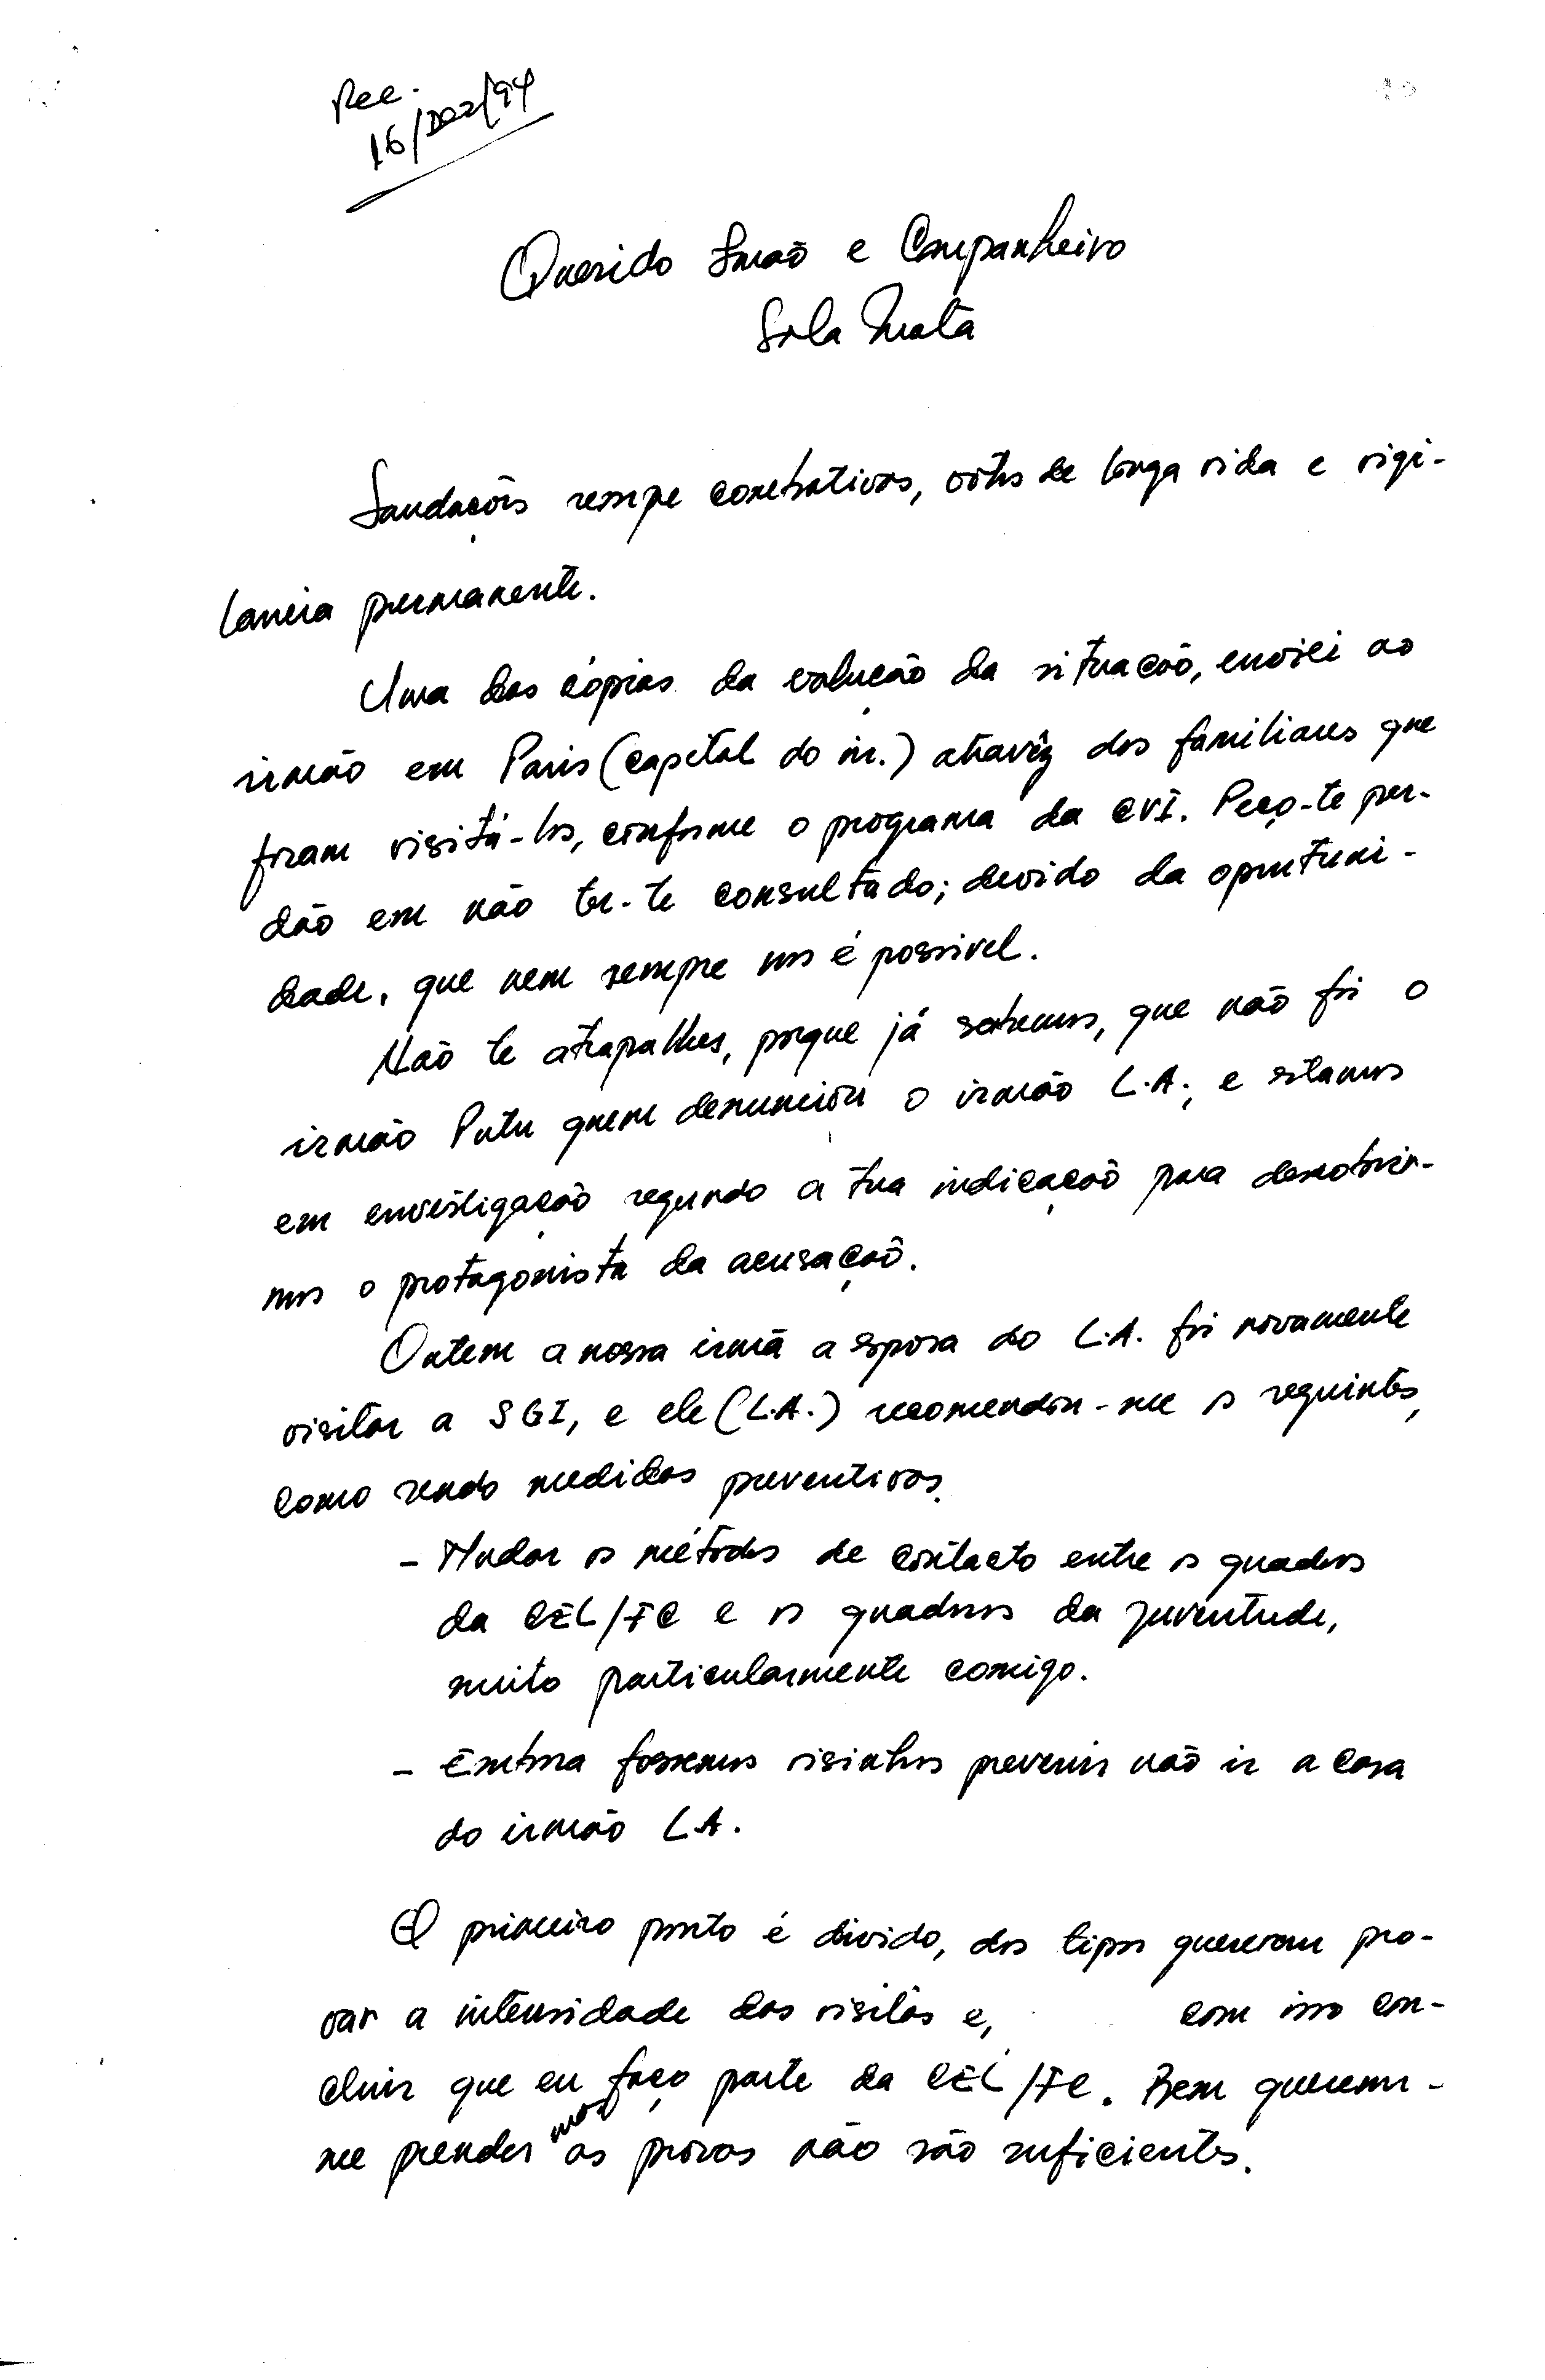 Rec.
16/Dez/94
Querido Irmaõ e Companheiro
Sola Mata
Saudações sempe combativas, votos de longa vida e vigi-
lancia permanente.
Uma das cópias da evolução da situacaõ, enviei ao
irmão em Paris (capital do in.) atravêz dos familiares que
foram visitá-los, conforme o programa da CVI. Peço-te per-
dão em não ter-te consultado; devido da oportuni-
dade, que nem sempre nos é possivel.
Não te atrapalhes, porque já sabemos, que não foi o
irmão Putu quem denunciou o irmão L.A; e estamos
em envestigação segundo a tua indicaçaõ para descobrir-
mos o protagonista da acusaçaõ.
Ontem a nossa irmã a esposa do L.A. foi novamente
visitar a SGI, e ele (L.A.) recomendou-me os seguintes,
como sendo medidas preventivas.
- Mudar os métodos de contacto entre os quadros
da CEL/FC e os quadros da juventude,
muito particularmente comigo.
- Embora fossemos visinhos prevenir não ir a casa
do irmão L.A.
O primeiro ponto é divido, dos tipos quererem pro-
var a intensidade das visitas e, com isso con-
cluir que eu faço parte da CEL/FC. Bem querem-
me prender mas as provas não são suficientes.